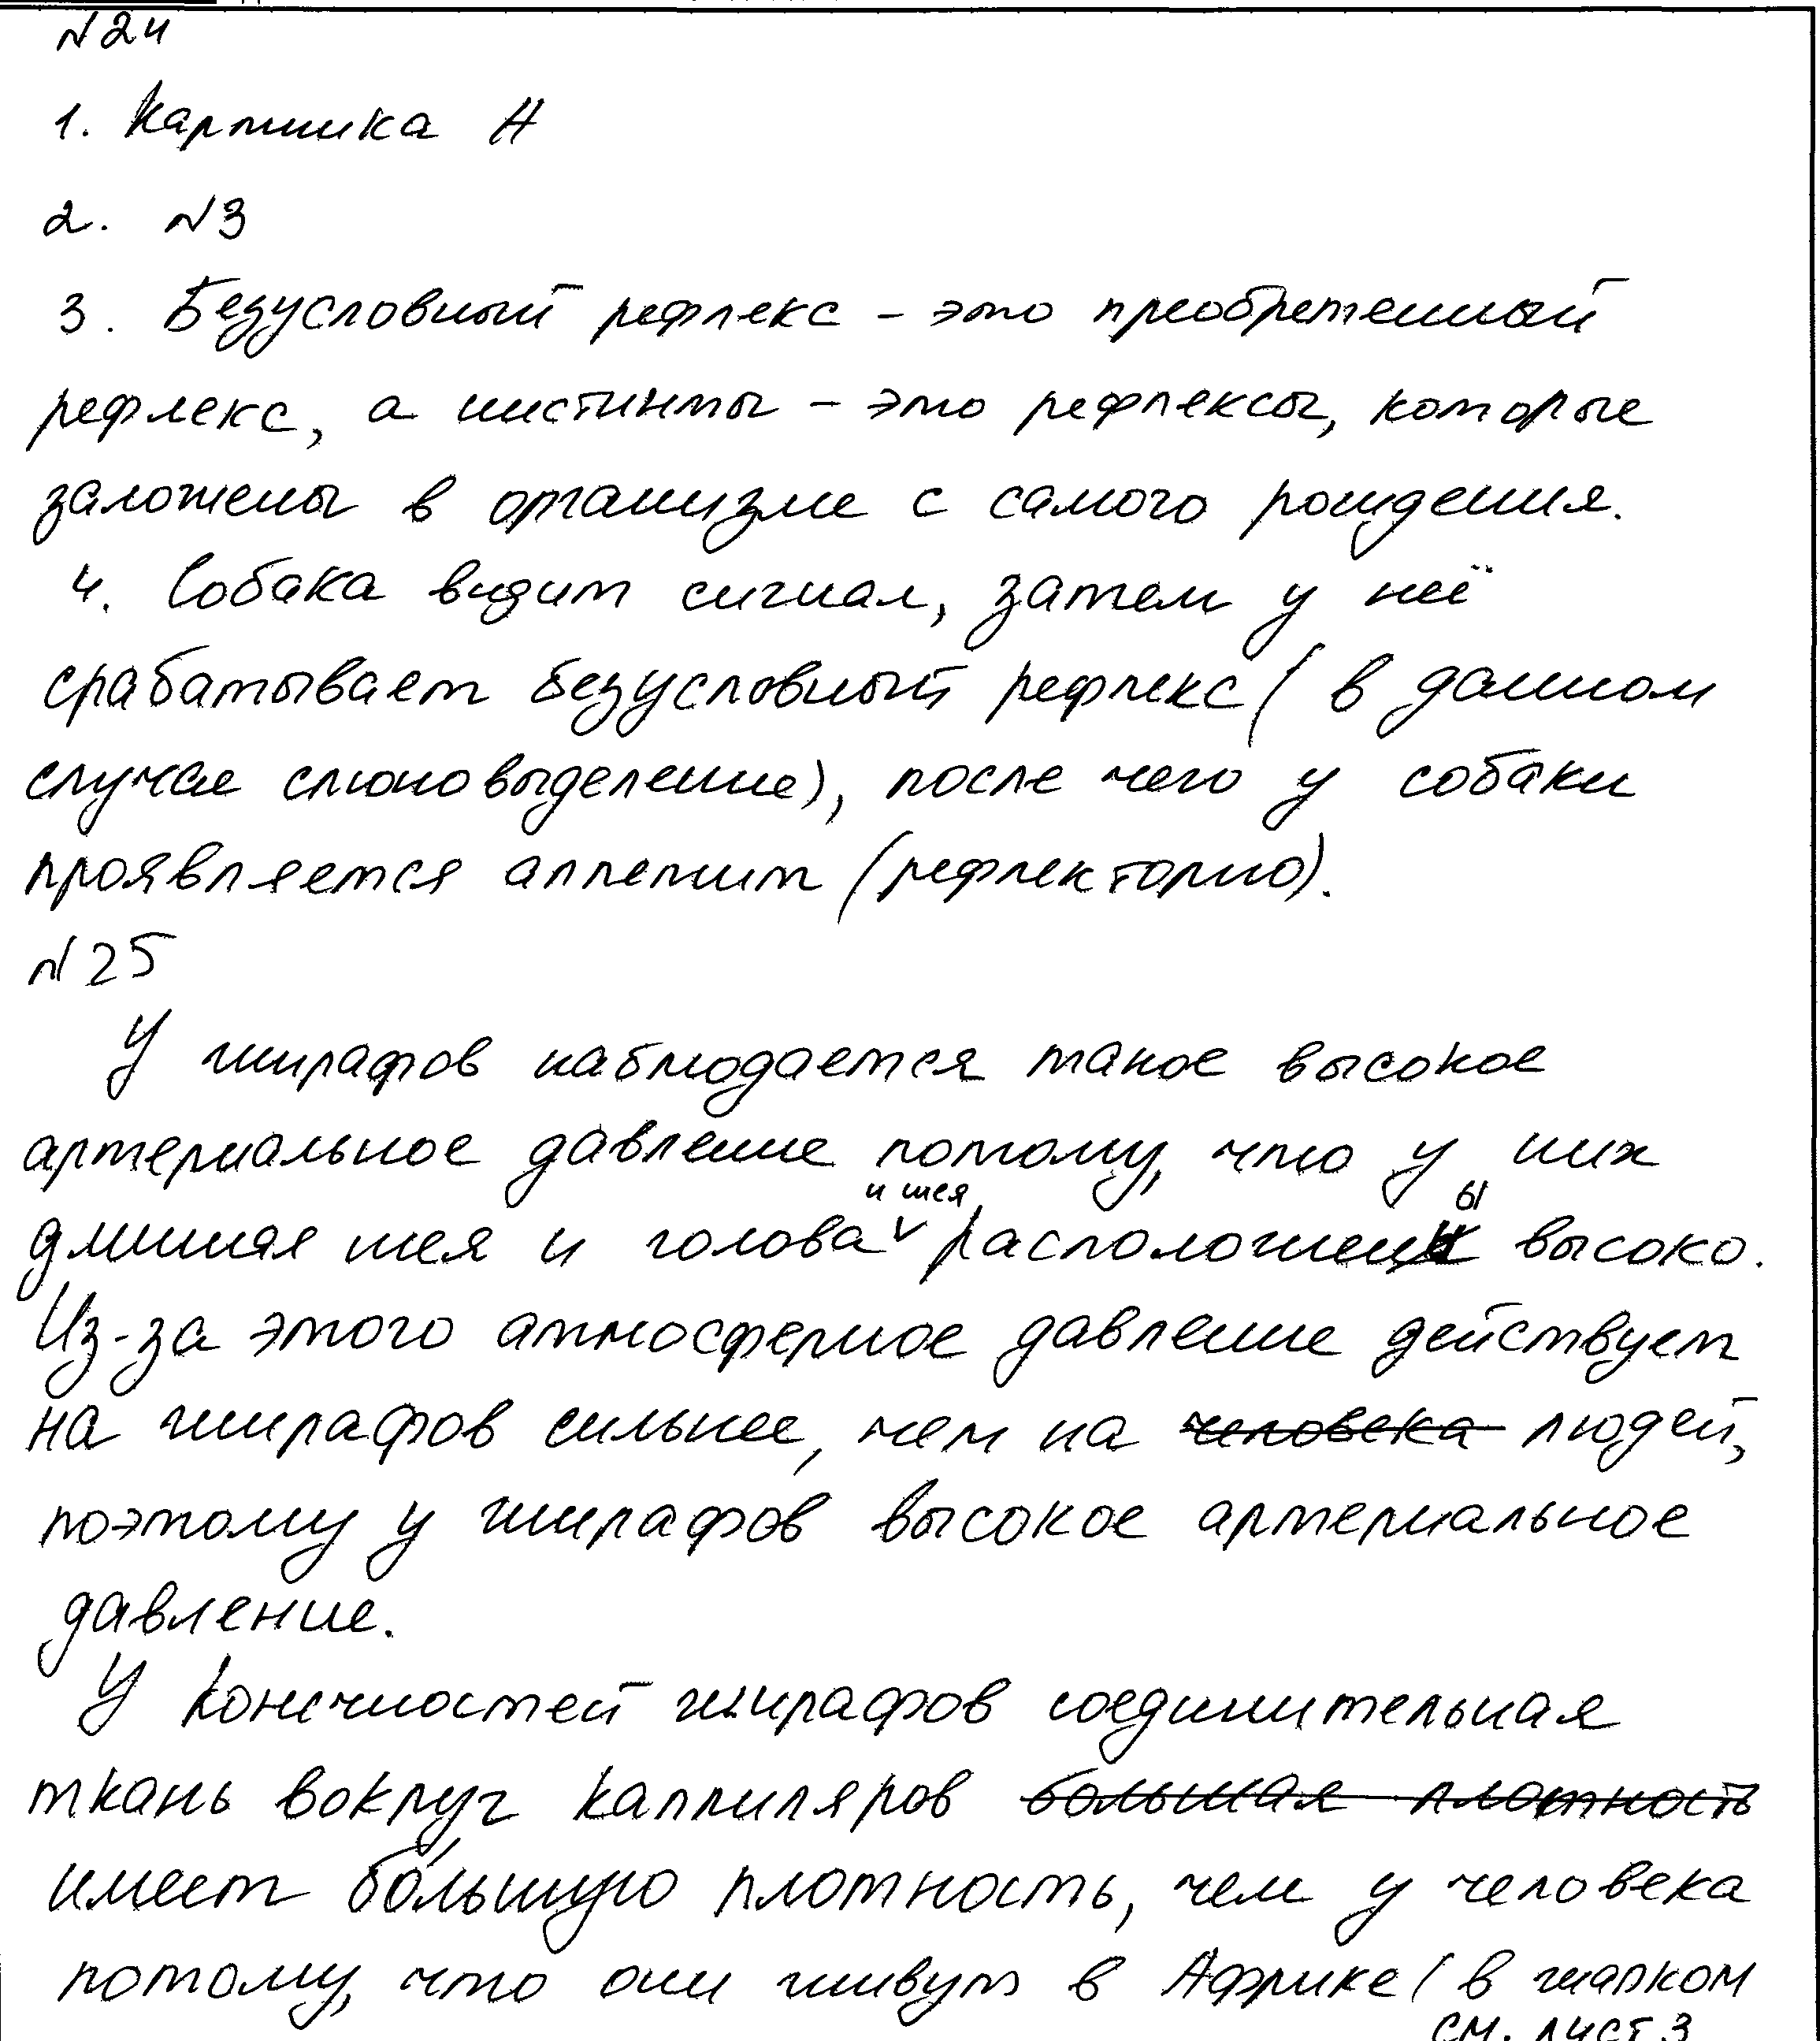 №24
1. Картинка А
2. №3
3. Безусловный рефлекс – это преобретенный
рефлекс, а инстинты – это рефлексы, которые
заложены в организме с самого рождения.
4. Собака видит сигнал, затем у неё
срабатывает безусловный рефлекс (в данном
случае слюновыделение), после чего у собаки
проявляется аппетит (рефлекторно).
№25
У жирафов наблюдается такое высокое
артериальное давление потому, что у них
длинная шея и голова и шея расположены высоко.
Из-за этого атмосферное давление действует
на жирафов сильнее, чем на человека людей,
поэтому у жирафов высокое артериальное
давление.
У конечностей жирафов соединительная
ткань вокруг каппиляров большая плотность
имеет бо́льшую плотность, чем у человека
потому, что они живут в Африке (в жарком
см. лист 3